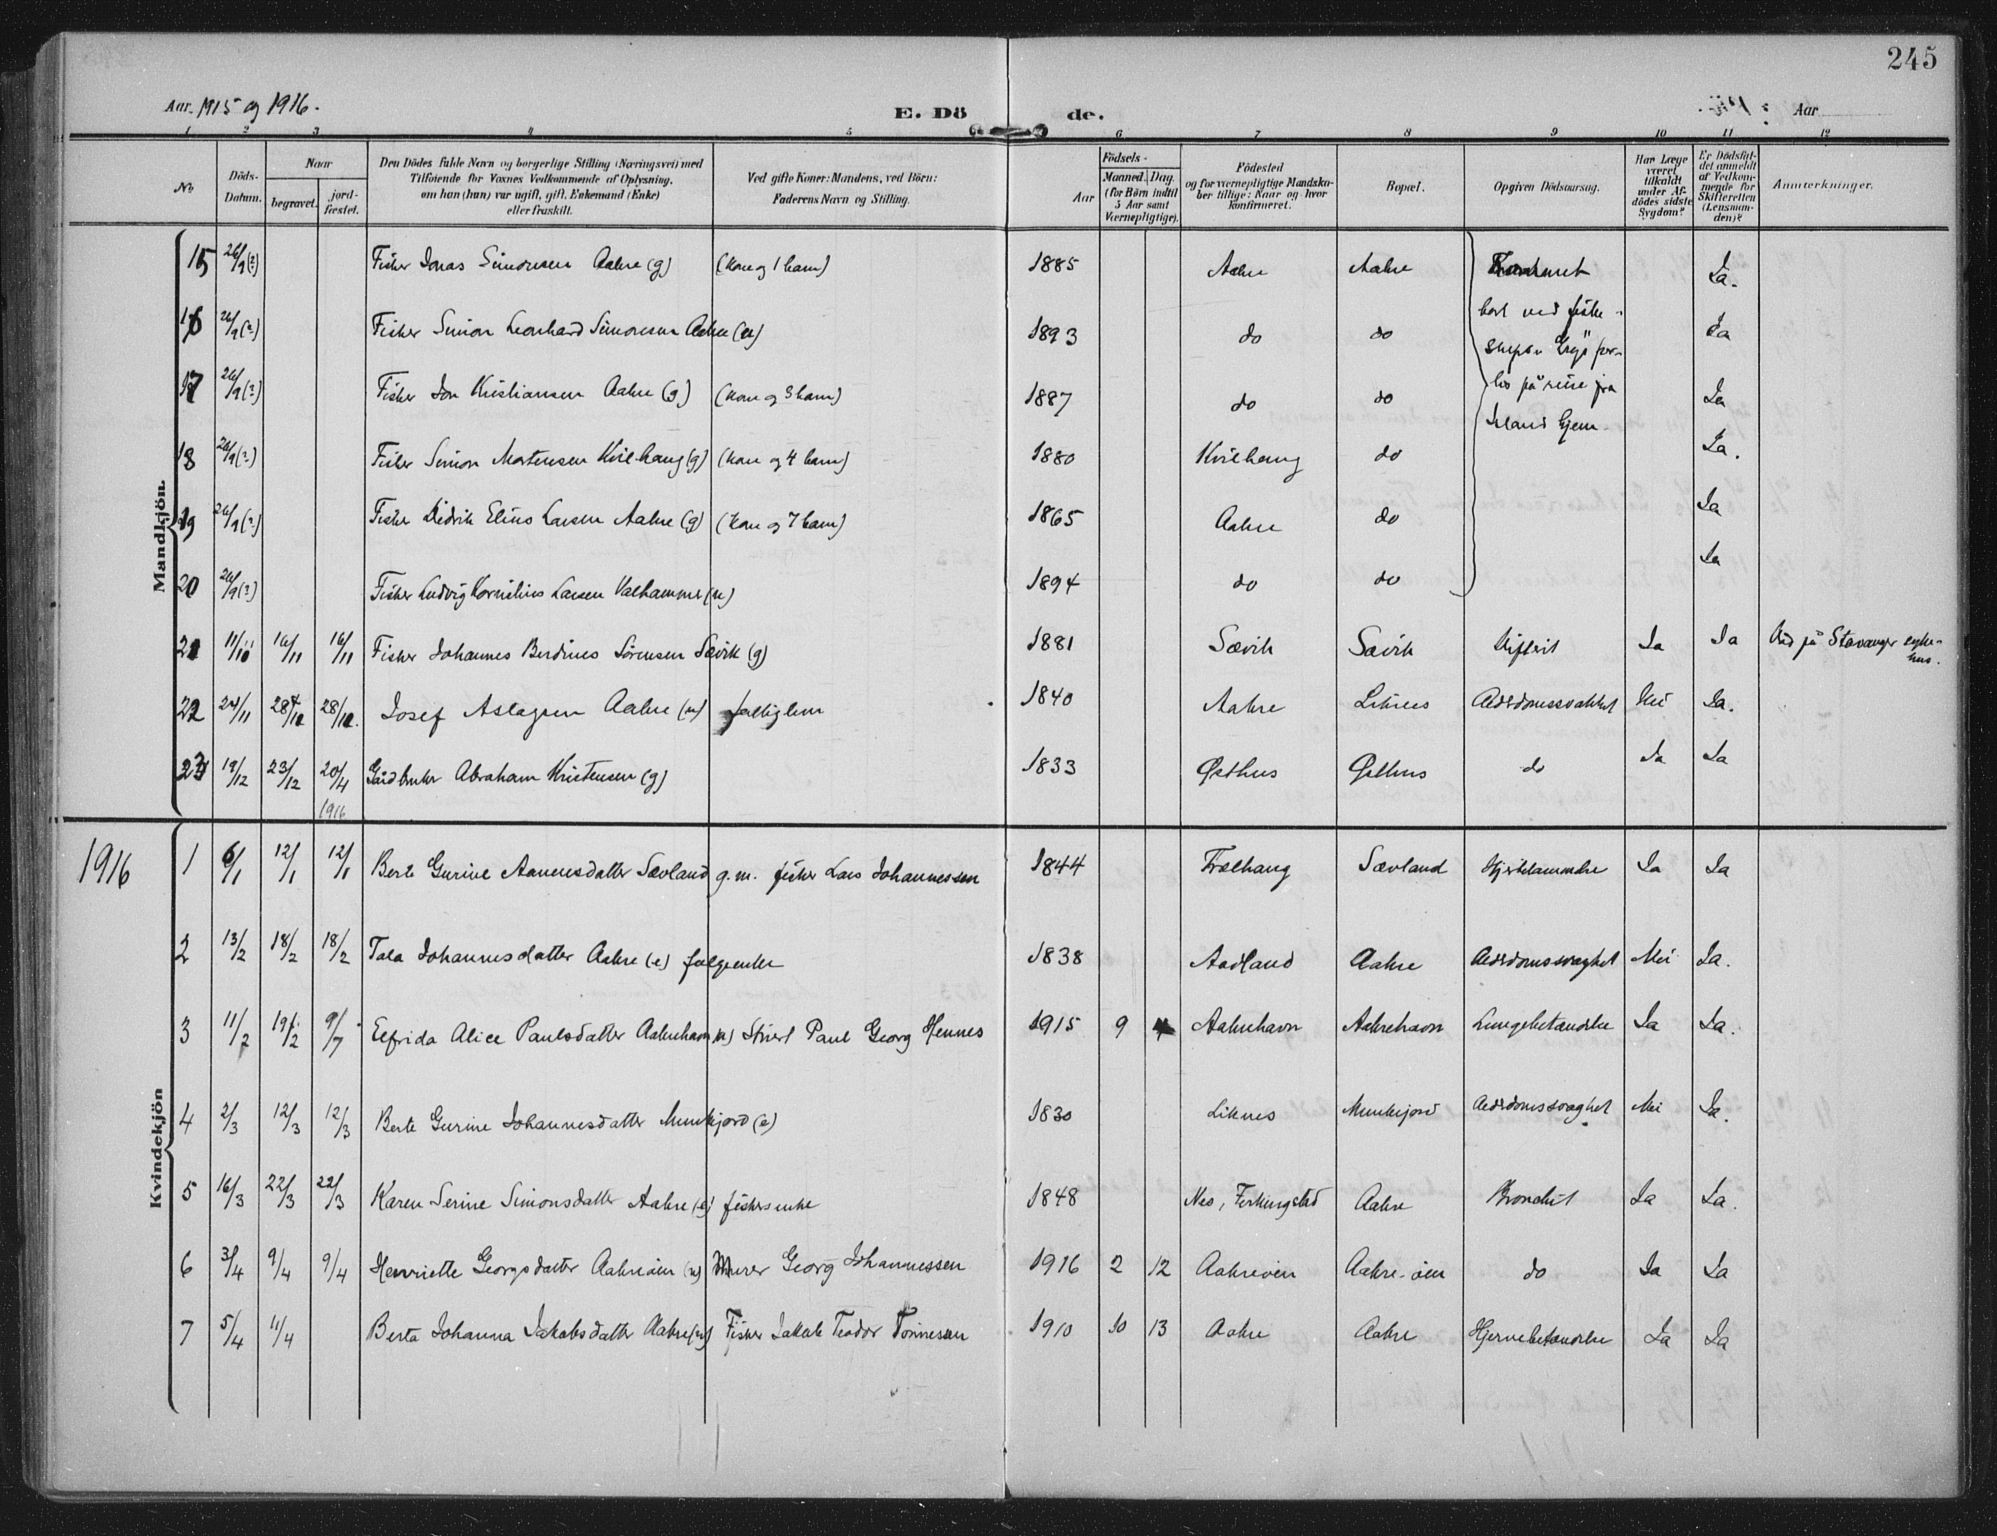 245
Aar 1915 og 1916.
E. Döde.
Aar
1 2 3 4 5 6 7 8 9 10 11 12
No
Döds-Datum.
Naar
begravet.
jordfæstet.
Den Dödes fulde Navn og borgerlige Stilling (Næringsvei) med
Tilføiende for Voxnes Vedkommende af Oplysning,
om han (hun) var ugift, gift, Enkemand (Enke)
eller fraskilt.
Ved gifte Koner: Mandens, ved Börn:
Faderens Navn og Stilling.
Födsels-
Aar
Maaned. Dag.
(for Börn indtil 5 Aar samt Værnepligtige).
Födested
og for værnepligtige Mandskaber tillige: Naar og hvor konfirmeret.
Bopæl.
Opgiven Dödsaarsag.
Har Læge været tilkaldt under Afdödes sidste Sygdom?
Er Dödsfaldet anmeldt af Vedkommende for Skifteretten (Lensmanden)?
Anmærkninger.
Mandkjön.
15 26/9(?) Fisker Jonas Simonsen Aakre (g) (kone og 1 barn) 1885 Aakre Aakre Ja.
16 26/9(?) Fisker Simon Leonhard Simonsen Aakre (u) 1893 do do Ja
17 26/9(?) Fisker Jon Kristiansen Aakre (g) (kone og 3 barn) 1887 do do Ja
18 26/9(?) Fisker Simon Mortensen Kvilhaug (g) (kone og 4 barn) 1880 Kvilhaug do Ja.
19 26/9(?) Fisker Didrik Elius Larsen Aakre (g) (kone og 7 barn) 1865 Aakre do Ja
20 26/9(?) Fisker Ludvig Kornelius Larsen Valhammer (u) 1894 do do Ja
Kommet
bort ved fiske-
skøyten "Ergo" for-
lis på reise fra
Island hjem.
21 11/10 16/11 16/11 Fisker Johannes Berdines Sørensen Sævik (g) 1881 Sævik Sævik Difterit Ja Ja Død på Stavanger syke-
hus.
22 24/11 28/12 28/12. Josef Aslagsen Aakre (u) fattiglem 1840 Aakre Liknes Alderdomssvakhet Nei Ja.
23 19/12 23/12 20/4 1916 Gårdbruker Abraham Kristensen (g) 1833 Østhus Østhus do Ja Ja
1916
Kvindekjön
1 6/1 12/1 12/1 Berte Gurine Aanensdatter Sævland g.m. fisker Lars Johannessen 1844 Trælhaug Sævland Hjertelammelse Ja Ja
2 13/2 18/2 18/2 Tala Johannesdatter Aakre (e) folgeenke 1838 Aadland Aakre Alderdomssvaghet Nei Ja.
3 11/2 19/2 9/7 Elfrida Alice Paulsdatter Aakrehavn (u) Stuert Paul Georg Hennes 1915 9 4 Aakrehavn Aakrehavn Lungebetændelse Ja Ja.
4 2/3 12/3 12/3 Berte Gurine Johannesdatter Munkejord (e) 1830 Liknes Munkejord Alderdomssvaghet Nei Ja.
5 16/3 22/3 22/3 Karen Serine Simonsdatter Aakre (e) fiskersenke 1848 Nes, Ferkingstad Aakre Bronchit Ja Ja.
6 3/4 9/4 9/4 Henriette Georgsdatter Aakreøen (u) Murer Georg Johannessen 1916 2 12 Aakreøen Aakre-øen do Ja Ja
7 5/4 11/4 Berta Johanna Jakobsdatter Aakre (u) Fisker Jakob Teodor Tønnesen 1910 10 13 Aakre Aakre Hjernebetændelse Ja Ja